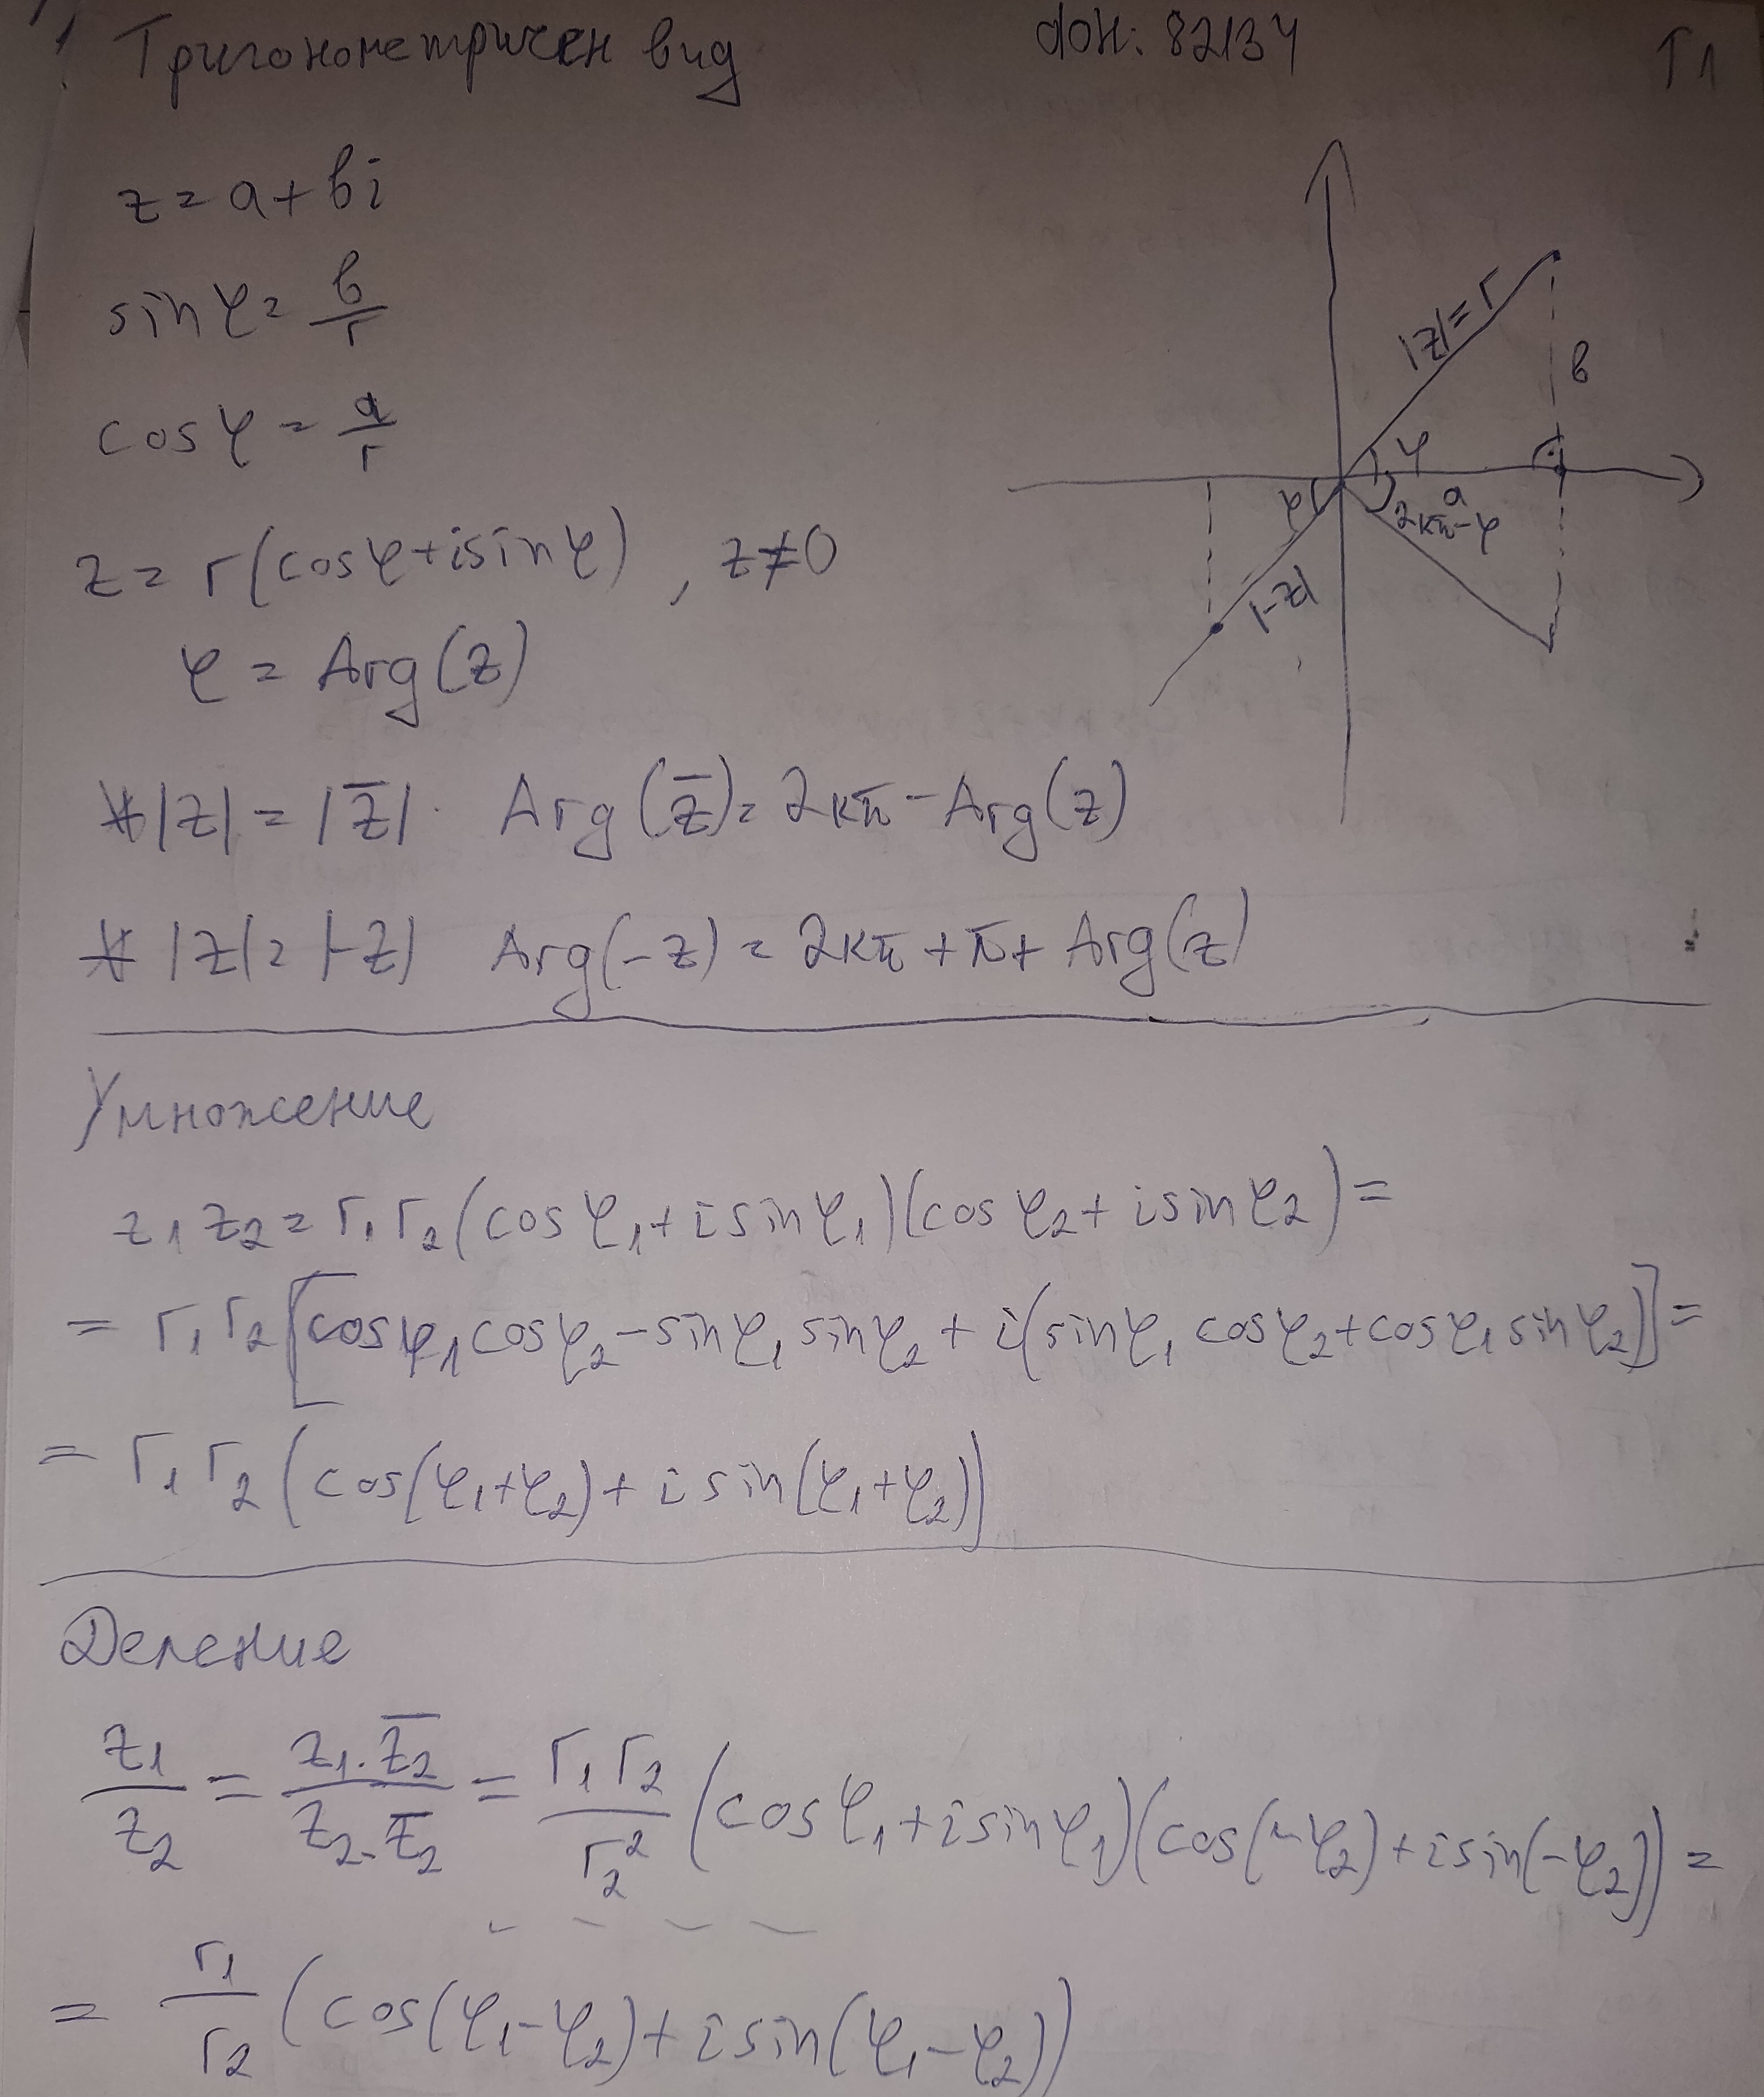 Тригонометричен вид
фн: 82134
T1
z = a + bi
sin φ = b/r
cos φ = a/r
z = r(cos φ + i sin φ), z ≠ 0
φ = Arg(z)
|z| = r
b
φ
a
2kπ - φ
φ
|-z|
* |z| = |z̅| Arg(z̅) = 2kπ - Arg(z)
* |z| = |-z| Arg(-z) = 2kπ + π + Arg(z)
Умножение
z₁ z₂ = r₁ r₂ (cos φ₁ + i sin φ₁)(cos φ₂ + i sin φ₂) =
= r₁ r₂ [cos φ₁ cos φ₂ - sin φ₁ sin φ₂ + i(sin φ₁ cos φ₂ + cos φ₁ sin φ₂)] =
= r₁ r₂ (cos(φ₁ + φ₂) + i sin(φ₁ + φ₂))
Деление
z₁/z₂ = z₁.z̅₂/z₂.z̅₂ = r₁ r₂/r₂² (cos φ₁ + i sin φ₁)(cos(-φ₂) + i sin(-φ₂)) =
= r₁/r₂ (cos(φ₁ - φ₂) + i sin(φ₁ - φ₂))